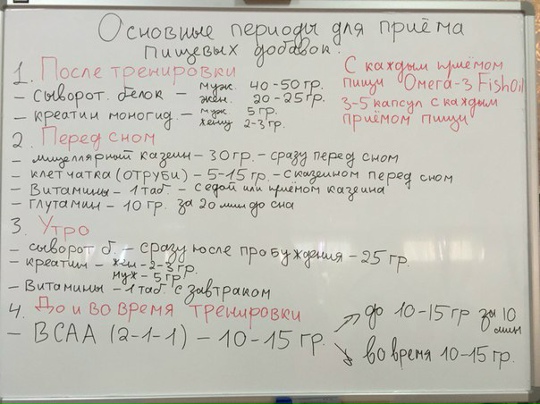 Основные периоды для приёма
пищевых добавок.
1. После тренировки
– Сыворот. белок – муж. 40-50 гр.
жен. 20-25 гр.
– креатин моногид. – муж 5 гр.
женщ 2-3 гр.
С каждым приёмом
пищи Омега-3 FishOil
3-5 капсул с каждым
приёмом пищи
2. Перед сном
– мицеллярный казеин – 30 гр. – сразу перед сном
– клетчатка (отруби) – 5-15 гр. – с казеином перед сном
– Витамины – 1 таб – с едой или приёмом казеина
– глутамин – 10 гр. за 20 мин до сна
3. Утро
– сыворот б. – сразу после пробуждения – 25 гр.
– креатин – жен – 2-3 гр.
муж – 5 гр
– Витамины – 1 таб. с завтраком
4. До и во время тренировки
– BCAA (2-1-1) – 10-15 гр.
до 10-15 гр за 10
мин
во время 10-15 гр.